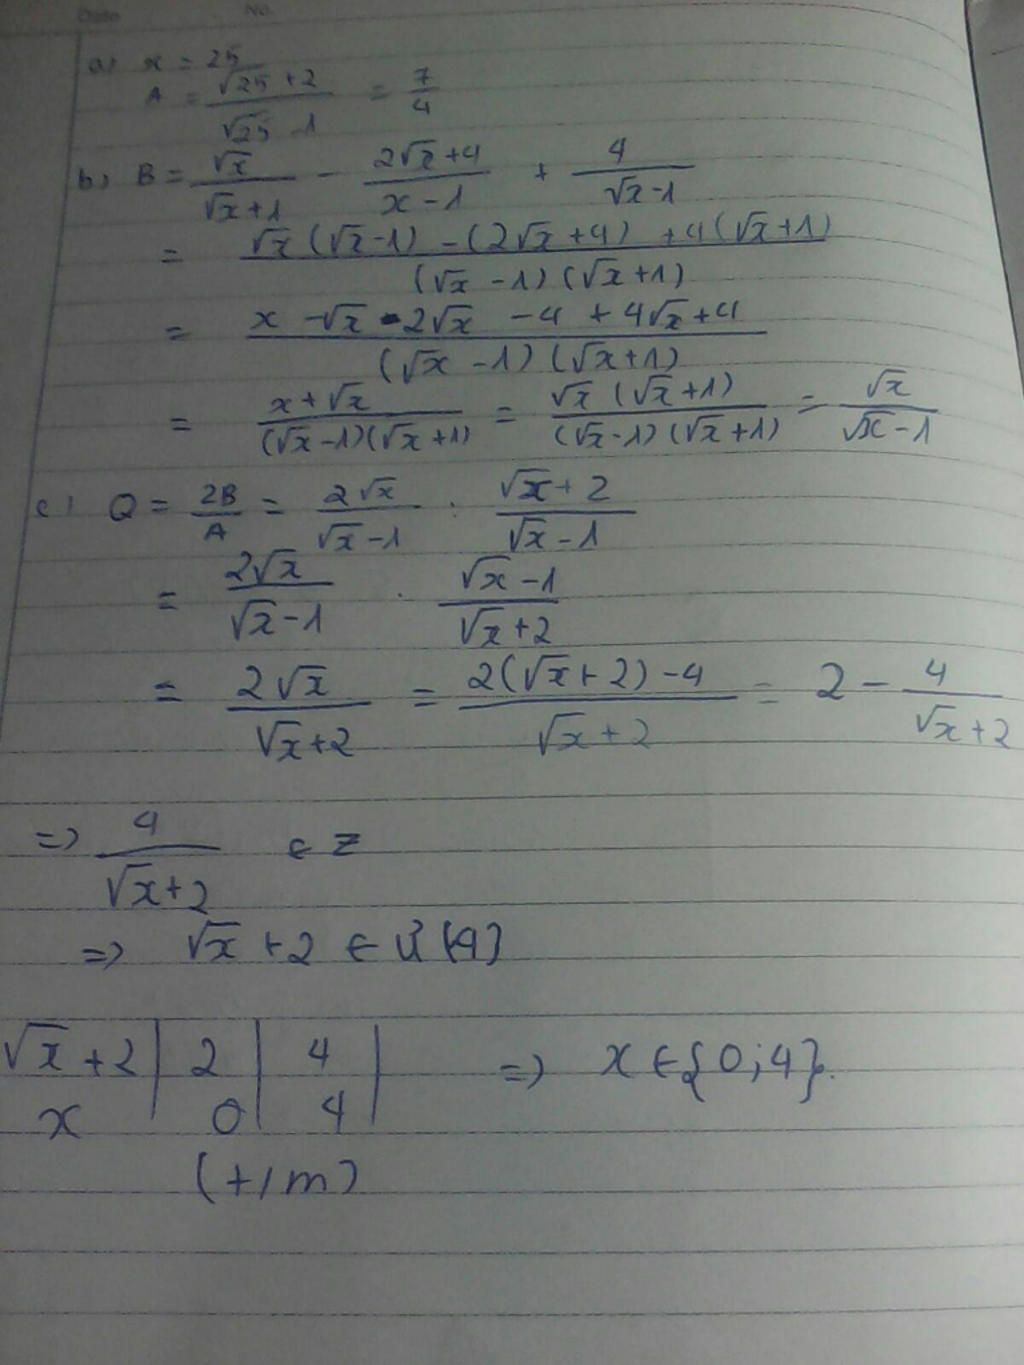 Date No.
a) x = 25
A = (√25 + 2)/(√25 - 1) = 7/4
b) B = √x/(√x+1) - (2√x+4)/(x-1) + 4/(√x-1)
= (√x(√x-1) - (2√x+4) + 4(√x+1))/((√x-1)(√x+1))
= (x - √x - 2√x - 4 + 4√x + 4)/((√x-1)(√x+1))
= (x+√x)/((√x-1)(√x+1)) = (√x(√x+1))/((√x-1)(√x+1)) = √x/(√x-1)
c) Q = 2B/A = 2√x/(√x-1) : (√x+2)/(√x-1)
= 2√x/(√x-1) . (√x-1)/(√x+2)
= 2√x/(√x+2) = (2(√x+2)-4)/(√x+2) = 2 - 4/(√x+2)
=> 4/(√x+2) ∈ Z
=> √x+2 ∈ Ư{4}
√x+2 | 2 | 4 | => x ∈ {0;4}.
x | 0 | 4 |
(t/m)